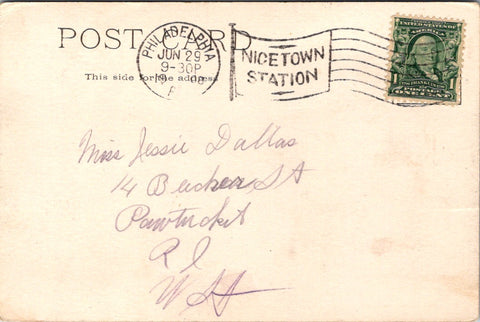 POST CARD
This side for the address
PHILADELPHIA
JUN 29
9-30P
NICETOWN
STATION
UNITED STATES OF AMERICA
1
POSTAGE
ONE CENT
Miss Jessie Dallas
14 St
Pawtucket
R I